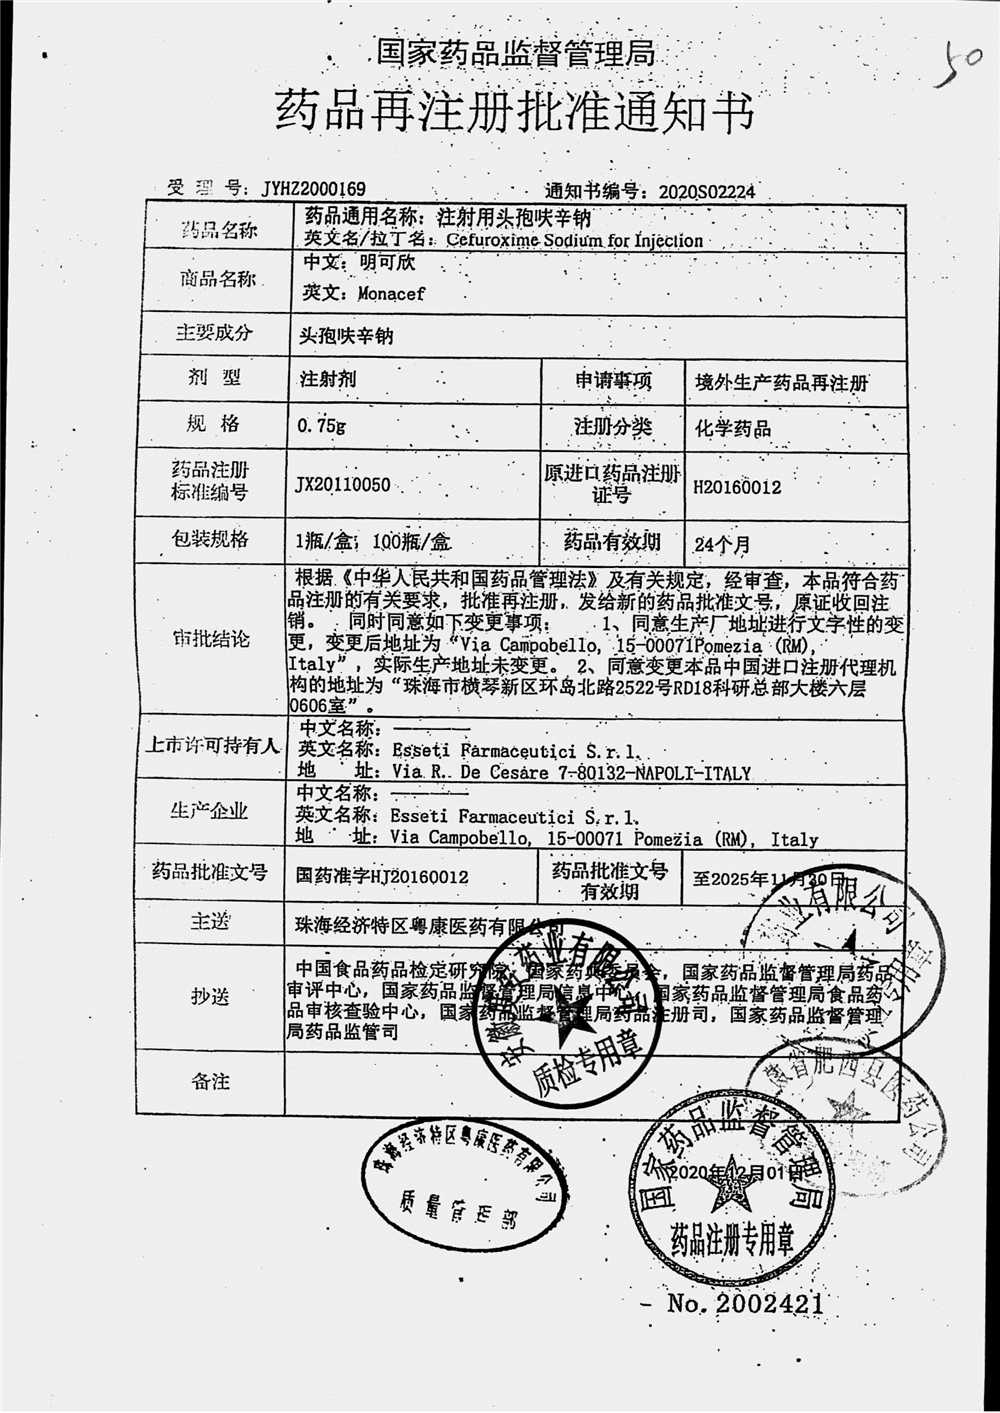 50
国家药品监督管理局
药品再注册批准通知书
受理号：JYHZ2000169 通知书编号：2020S02224
药品名称 药品通用名称：注射用头孢呋辛钠
英文名/拉丁名：Cefuroxime Sodium for Injection
商品名称 中文：明可欣
英文：Monacef
主要成分 头孢呋辛钠
剂 型 注射剂 申请事项 境外生产药品再注册
规 格 0.75g 注册分类 化学药品
药品注册标准编号 JX20110050 原进口药品注册证号 H20160012
包装规格 1瓶/盒；100瓶/盒 药品有效期 24个月
审批结论
根据《中华人民共和国药品管理法》及有关规定，经审查，本品符合药
品注册的有关要求，批准再注册，发给新的药品批准文号，原证收回注
销。 同时同意如下变更事项： 1、同意生产厂地址进行文字性的变
更，变更后地址为“Via Campobello, 15-00071Pomezia (RM),
Italy”，实际生产地址未变更。2、同意变更本品中国进口注册代理机
构的地址为“珠海市横琴新区环岛北路2522号RD18科研总部大楼六层
0606室”。
上市许可持有人 中文名称：————
英文名称：Esseti Farmaceutici S.r.l.
地 址：Via R. De Cesare 7-80132-NAPOLI-ITALY
生产企业 中文名称：————
英文名称：Esseti Farmaceutici S.r.l.
地 址：Via Campobello, 15-00071 Pomezia (RM), Italy
药品批准文号 国药准字HJ20160012 药品批准文号有效期 至2025年11月30日
主送 珠海经济特区粤康医药有限公司
抄送
中国食品药品检定研究院，国家药典委员会，国家药品监督管理局药品
审评中心，国家药品监督管理局信息中心，国家药品监督管理局食品药
品审核查验中心，国家药品监督管理局药品注册司，国家药品监督管理
局药品监管司
备注
药业有限公司
质检专用章
业有限公司
省肥西县医药公司
珠海经济特区粤康医药有限公司
质量管理部
国家药品监督管理局
2020年12月01日
药品注册专用章
No. 2002421